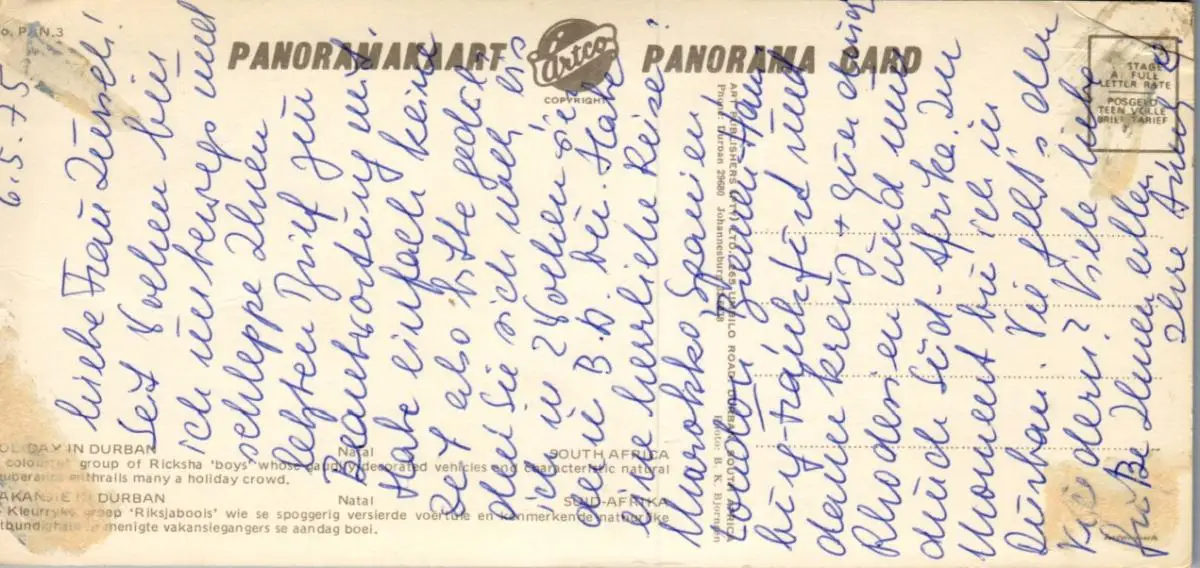 PAN.3
PANORAMAKAART
Artco
PANORAMA CARD
COPYRIGHT
STAGE
A FULL
LETTER RATE
POSGELD
TEEN VOLLE
BRIEF TARIEF
6.5.75
Liebe Frau
Seit Wochen bin
ich unterwegs und
schleppe Ihren
letzten Brief zum
Beantwortung mit.
Habe einfach keine
Zeit also bitte gedul-
den Sie sich noch bis
ich in 2 Wochen
B.D. bin. Habe
eine herrliche Reise:
Marokko, Spanien,
London,
burg, Frankfurt und
dann kreuz + quer durch
Rhodesien und nun
durch Süd-Afrika. Im
Moment bin ich in
Durban. Wie geht's den
Kindern? Viele liebe
Ihnen allen
Ihre
ART PUBLISHERS (PTY) LTD., 265 UMBILO ROAD, DURBAN, SOUTH AFRICA
Phone: Durban 29680 Johannesburg
Photo: B. K. Bjornsen
HOLIDAY IN DURBAN Natal SOUTH AFRICA
colourful group of Ricksha 'boys' whose gaudily decorated vehicles and characteristic natural
exuberance enthralls many a holiday crowd.
VAKANSIE IN DURBAN Natal SUID-AFRIKA
Kleurryke groep 'Riksjabools' wie se spoggerig versierde voertuie en kenmerkende natuurlike
menigte vakansiegangers se aandag boei.